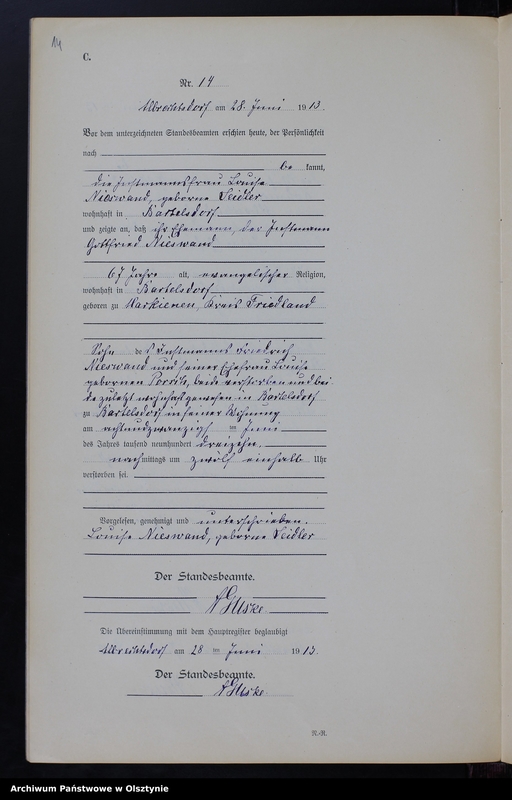 14
C.
Nr. 14
Albrechtsdorf am 28. Juni 1913.
Vor dem unterzeichneten Standesbeamten erschien heute, der Persönlichkeit
nach
be kannt,
die Instmannsfrau Louise
Nieswand, geborne Seidler
wohnhaft in Bartelsdorf
und zeigte an, daß ihr Ehemann, der Instmann
Gottfried Nieswand
67 Jahre alt, evangelischer Religion,
wohnhaft in Bartelsdorf
geboren zu Markienen, Kreis Friedland
Sohn des Instmanns Friedrich
Nieswand und seiner Ehefrau Louise
gebornen beide verstorben und bei
de zuletzt wohnhaft gewesen in Bartelsdorf
zu Bartelsdorf in seiner Wohnung
am achtundzwanzigsten im Juni
des Jahres tausend neunhundert dreizehn,
nachmittags um zwölf einhalb Uhr
verstorben sei.
Vorgelesen, genehmigt und unterschrieben.
Louise Nieswand, geborne Seidler
Der Standesbeamte.
Die Übereinstimmung mit dem Hauptregister beglaubigt
Albrechtsdorf am 28 ten Juni 1913.
Der Standesbeamte.
Archiwum Państwowe w Olsztynie